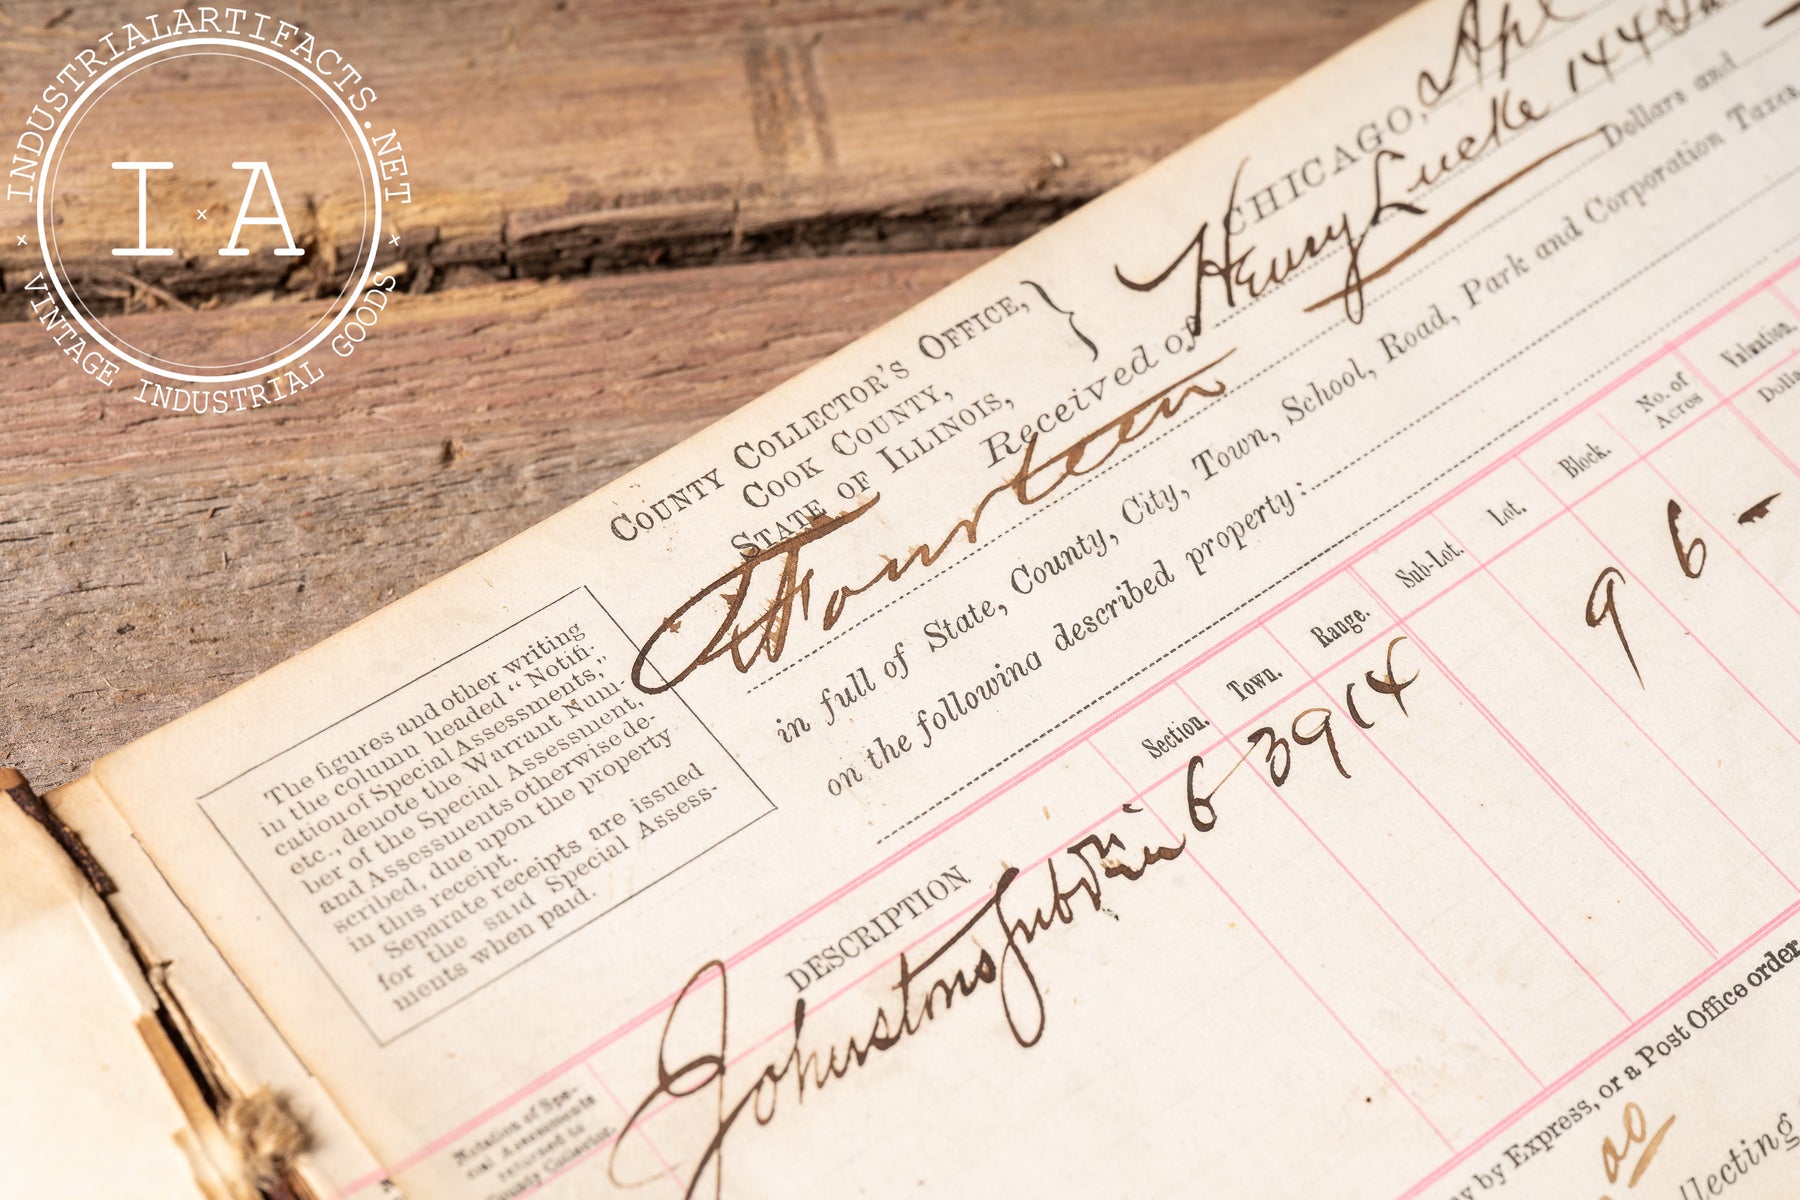 INDUSTRIALARTIFACTS.NET
I x A
x VINTAGE INDUSTRIAL GOODS x
COUNTY COLLECTOR'S OFFICE,
COOK COUNTY,
STATE OF ILLINOIS,
CHICAGO,
Received of Henry
Fourteen Dollars and
in full of State, County, City, Town, School, Road, Park and Corporation Taxes
on the following described property:
The figures and other writing
in the column headed "Notifi-
cation of Special Assessments,"
etc., denote the Warrant Num-
ber of the Special Assessment,
and Assessments otherwise de-
scribed, due upon the property
in this receipt.
Separate receipts are issued
for the said Special Assess-
ments when paid.
DESCRIPTION Section. Town. Range. Sub-Lot. Lot. Block. No. of Acres Valuation.
Johnstons 6 39 14 9 6 -
Notation of Spe-
cial Assessments
returned to
County Collector.
by Express, or a Post Office order